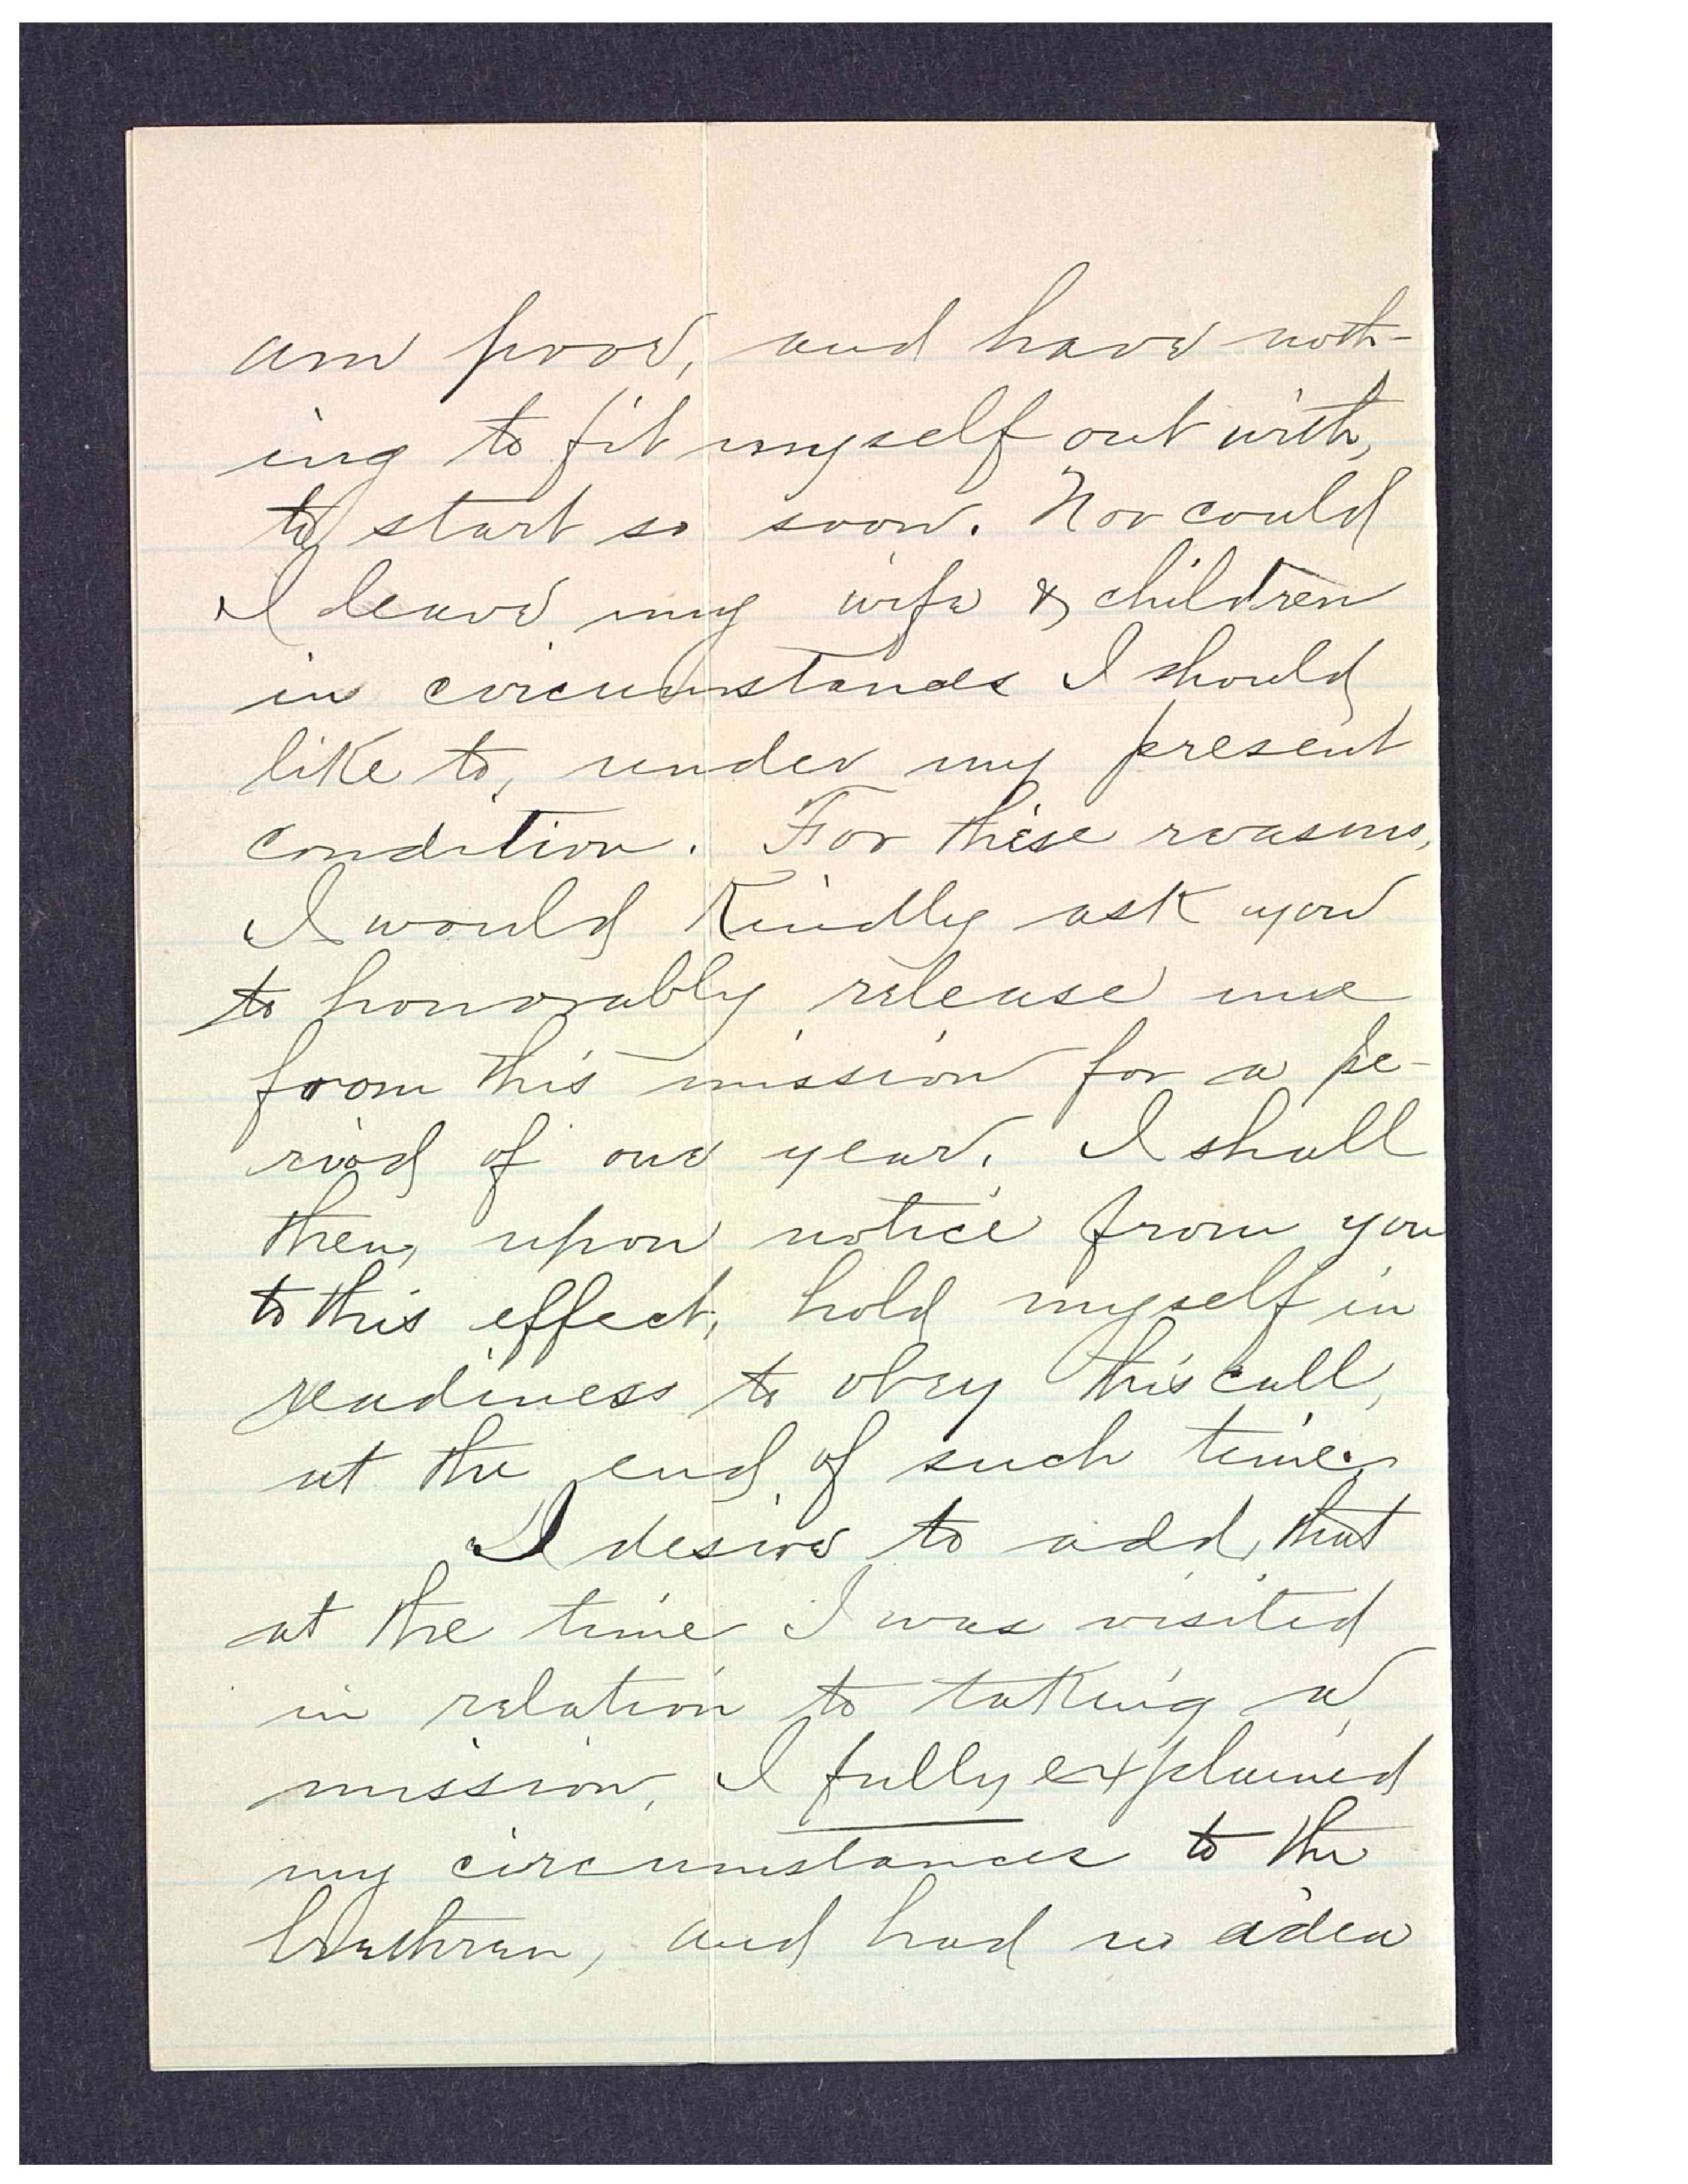 am poor, and have noth-
ing to fit myself out with,
to start so soon. Nor could
I leave my wife & children
in circumstances I should
like to, under my present
condition. For these reasons,
I would kindly ask you
to honorably release me
from this mission for a pe-
riod of one year. I shall
then, upon notice from you
to this effect, hold myself in
readiness to obey this call,
at the end of such time.
I desire to add, that
at the time I was visited
in relation to taking a
mission, I fully explained
my circumstances to the
brethren, and had no idea